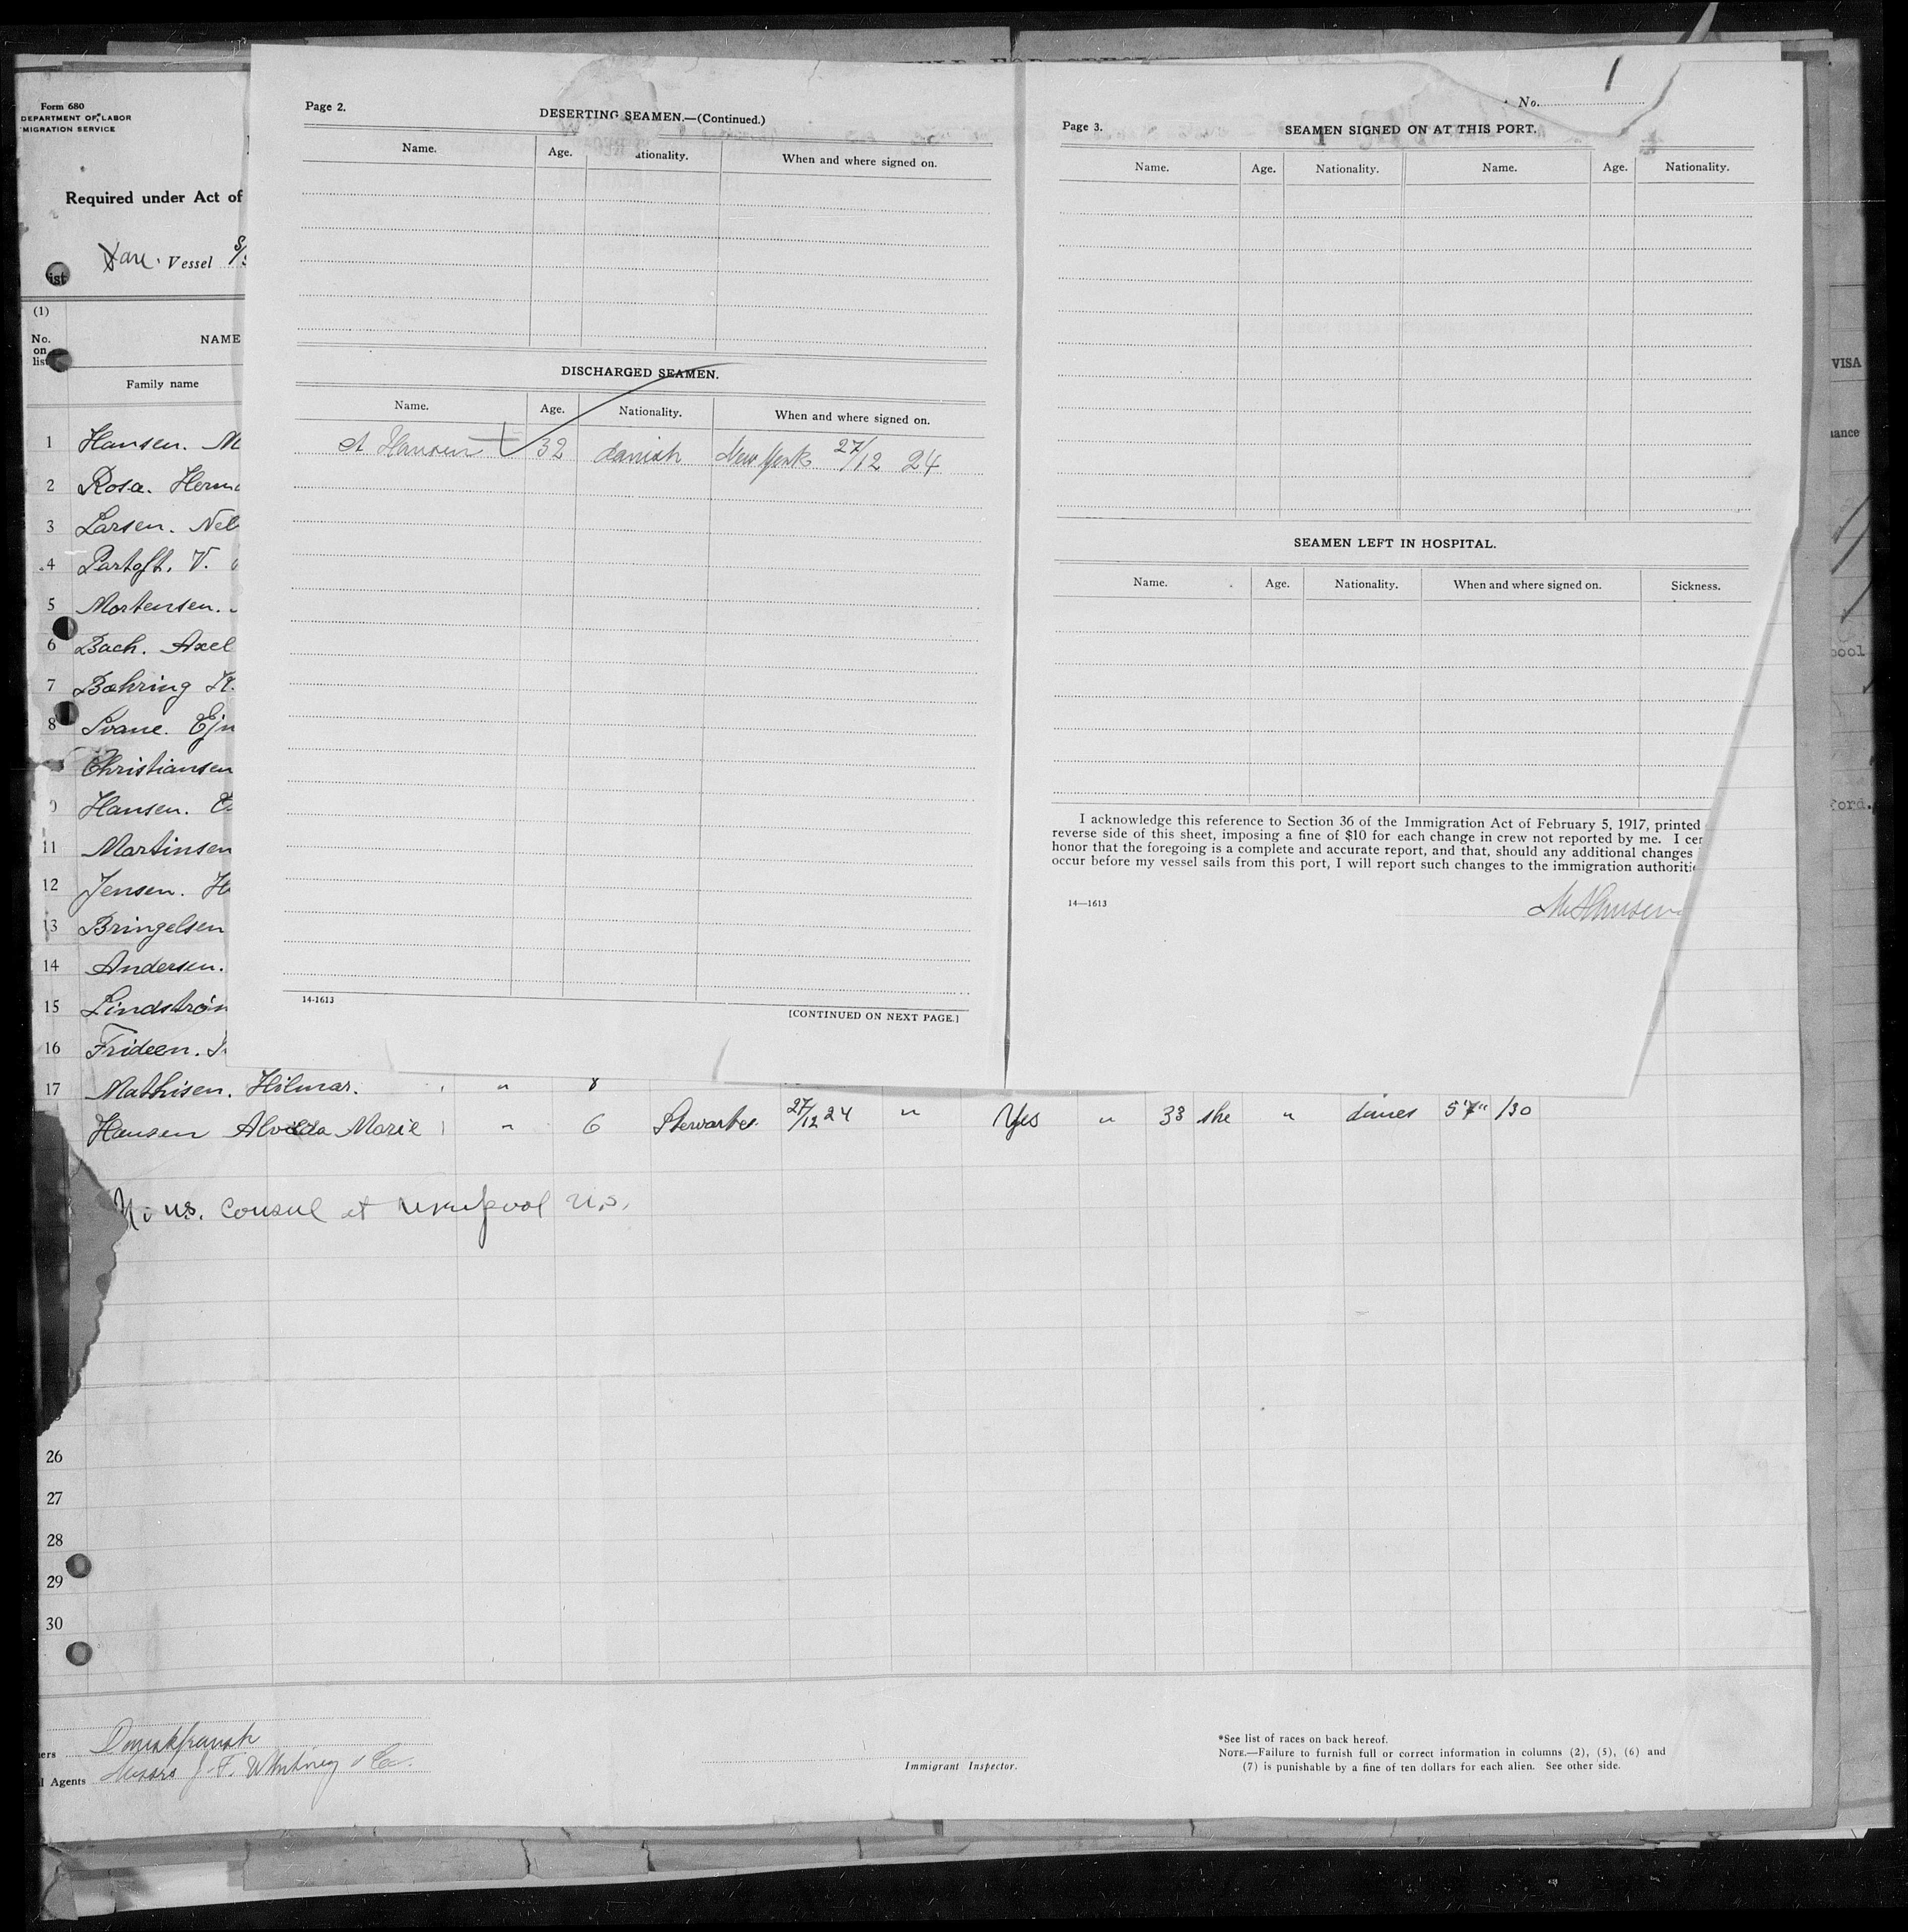 Form 680
DEPARTMENT OF LABOR
MIGRATION SERVICE
Required under Act of
Vessel S/S
ist
(1)
No. on list
NAME
Family name
1 Hansen. M
2 Rosa. Herm
3 Larsen. Nel
4 Partoft. V.
5 Mortensen.
6 Bach. Axel
7 Bæhring H.
8 Svane. Ejn
Christiansen
Hansen. C
11 Martinsen
12 Jensen. H
13 Bringelsen
14 Andersen.
15 Lindstrøm
16 Frideen.
17 Mathisen. Hilmar. " 8
Hansen Alvilda Marie " 6 Stewartes. 27/12 24 " Yes " 33 she " danes 5'7" 130
No U.S. Consul at U.S.
26
27
28
29
30
ers
l Agents Messrs J. F. Whitney & Co.
Immigrant Inspector.
*See list of races on back hereof.
NOTE.—Failure to furnish full or correct information in columns (2), (5), (6) and
(7) is punishable by a fine of ten dollars for each alien. See other side.
Page 2.
DESERTING SEAMEN.—(Continued.)
Name. Age. ationality. When and where signed on.
DISCHARGED SEAMEN.
Name. Age. Nationality. When and where signed on.
A Hansen 32 danish New York 27/12 24
14-1613
[CONTINUED ON NEXT PAGE.]
No. 1
Page 3.
SEAMEN SIGNED ON AT THIS PORT.
Name. Age. Nationality. Name. Age. Nationality.
SEAMEN LEFT IN HOSPITAL.
Name. Age. Nationality. When and where signed on. Sickness.
I acknowledge this reference to Section 36 of the Immigration Act of February 5, 1917, printed
reverse side of this sheet, imposing a fine of $10 for each change in crew not reported by me. I cer
honor that the foregoing is a complete and accurate report, and that, should any additional changes
occur before my vessel sails from this port, I will report such changes to the immigration authoritie
14—1613
M Hansen
VISA
ance
pool
ford.